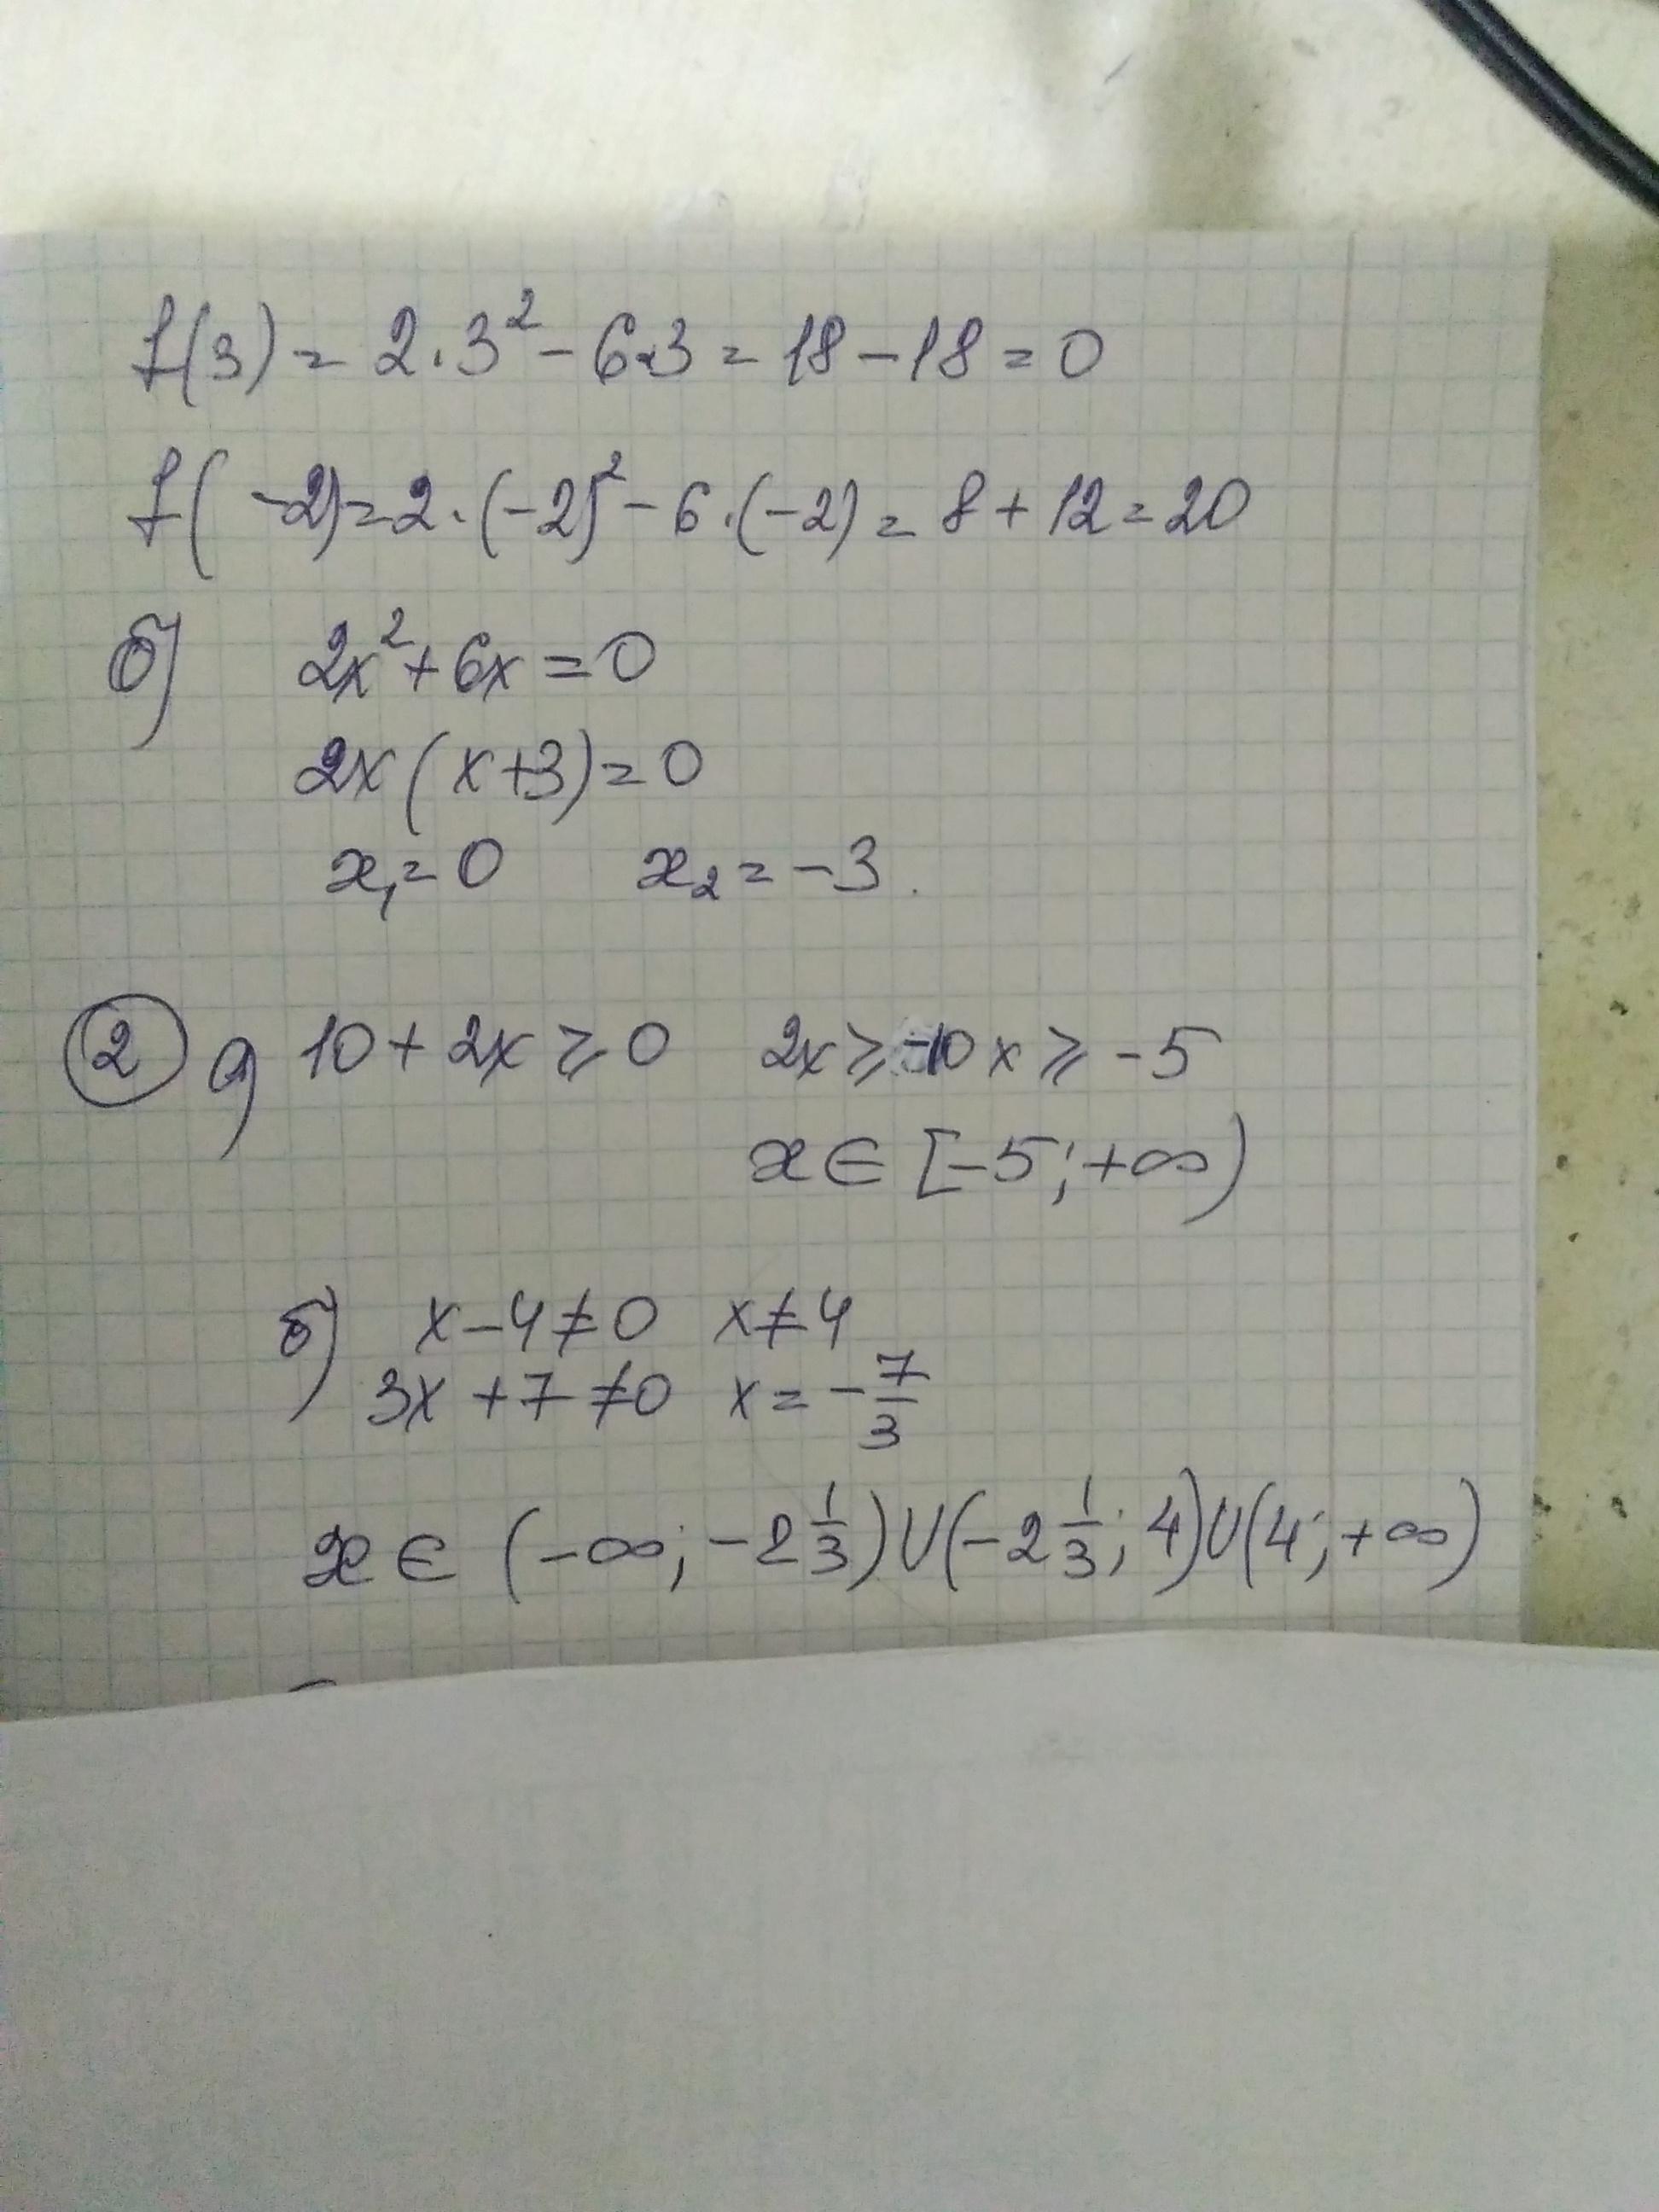 f(3) = 2·3² − 6·3 = 18 − 18 = 0
f( −2) = 2·(−2)² − 6·(−2) = 8 + 12 = 20
б) 2x² + 6x = 0
2x(x+3) = 0
x₁ = 0 x₂ = −3.
② а) 10 + 2x ⩾ 0 2x ⩾ −10 x ⩾ −5
x ∈ [−5; +∞)
б) x − 4 ≠ 0 x ≠ 4
3x + 7 ≠ 0 x = −7/3
x ∈ (−∞; −2 1/3) ∪ (−2 1/3; 4) ∪ (4; +∞)